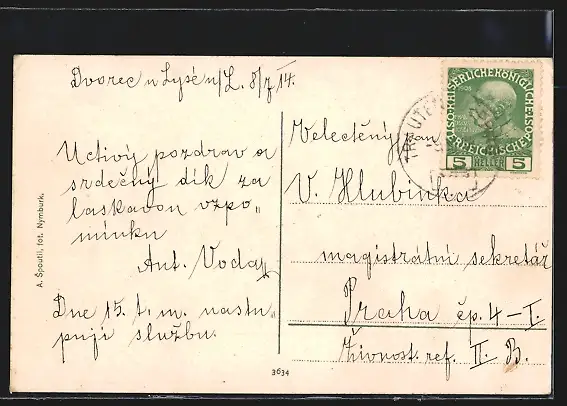 Dvorec u Lysé n/L. 8/7 14.
Uctivý pozdrav a
srdečný dík za
laskavou vzpo„
mínku
Ant. Voda
Dne 15. t. m. nastu„
puji službu.
A. Špoutil, fot. Nymburk.
3634
Velectěný pan
V. Hlubinka
magistrátní sekretář
Praha čp. 4 – I.
Živnost. ref. II. B.
5 HELLER 5